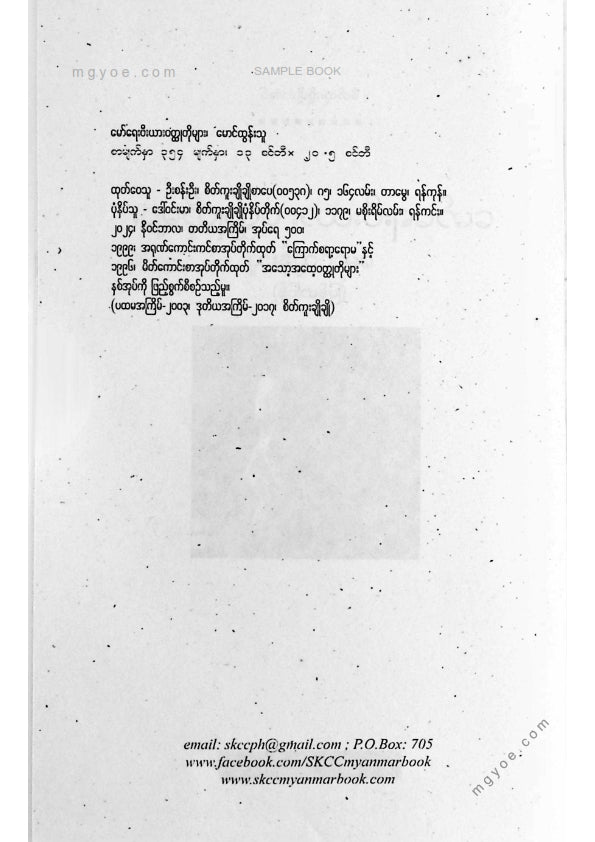 mgyoe.com
SAMPLE BOOK
မော်ရေးပီးယားဝတ္ထုတိုများ၊ မောင်ထွန်းသူ
စာမျက်နှာ ၃၅၄ မျက်နှာ၊ ၁၃ စင်တီ× ၂၀ ·၅ စင်တီ
ထုတ်ဝေသူ - ဦးစန်းဦး၊ စိတ်ကူးချိုချိုစာပေ(၀၀၅၃၈)၊ ဂ၅၊ ၁၆၄လမ်း၊ တာမွေ၊ ရန်ကုန်။
ပုံနှိပ်သူ - ဒေါ်ဝင်းမာ၊ စိတ်ကူးချိုချိုပုံနှိပ်တိုက်(၀၀၄၁၂)၊ ၁၁၇၉၊ မစိုးရိမ်လမ်း၊ ရန်ကင်း။
၂၀၂၄၊ နိုဝင်ဘာလ၊ တတိယအကြိမ်၊ အုပ်ရေ ၅၀၀၊
၁၉၉၉၊ အရုဏ်ကောင်းကင်စာအုပ်တိုက်ထုတ် “ကြောက်စရာ့ရောမ”နှင့်
၁၉၉၆၊ မိတ်ကောင်းစာအုပ်တိုက်ထုတ် “အသော့အထွေဝတ္ထုတိုများ”
နှစ်အုပ်ကို ဖြည့်စွက်စီစဉ်သည့်မူ။
(ပထမအကြိမ်-၂၀၀၃၊ ဒုတိယအကြိမ်-၂၀၁၇၊ စိတ်ကူးချိုချို)
email: skccph@gmail.com ; P.O.Box: 705
www.facebook.com/SKCCmyanmarbook
www.skccmyanmarbook.com
mgyoe.com